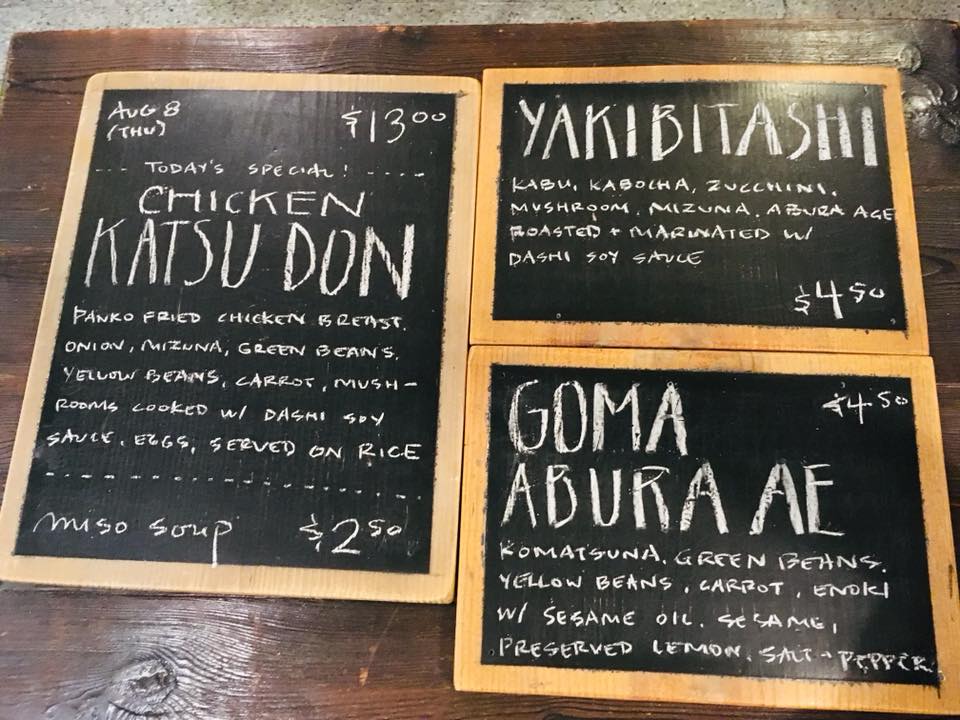 AUG 8
(THU)
$13.00
--- TODAY'S SPECIAL! ----
CHICKEN
KATSU DON
PANKO FRIED CHICKEN BREAST.
ONION, MIZUNA, GREEN BEANS.
YELLOW BEANS, CARROT, MUSH-
ROOMS COOKED W/ DASHI SOY
SAUCE. EGGS, SERVED ON RICE
miso soup $2.50
YAKIBITASHI
KABU, KABOCHA, ZUCCHINI,
MUSHROOM, MIZUNA. ABURA AGE
ROASTED + MARINATED W/
DASHI SOY SAUCE
$4.50
GOMA
$4.50
ABURA AE
KOMATSUNA. GREEN BEANS.
YELLOW BEANS, CARROT, ENOKI
W/ SESAME OIL. SESAME,
PRESERVED LEMON. SALT + PEPPER